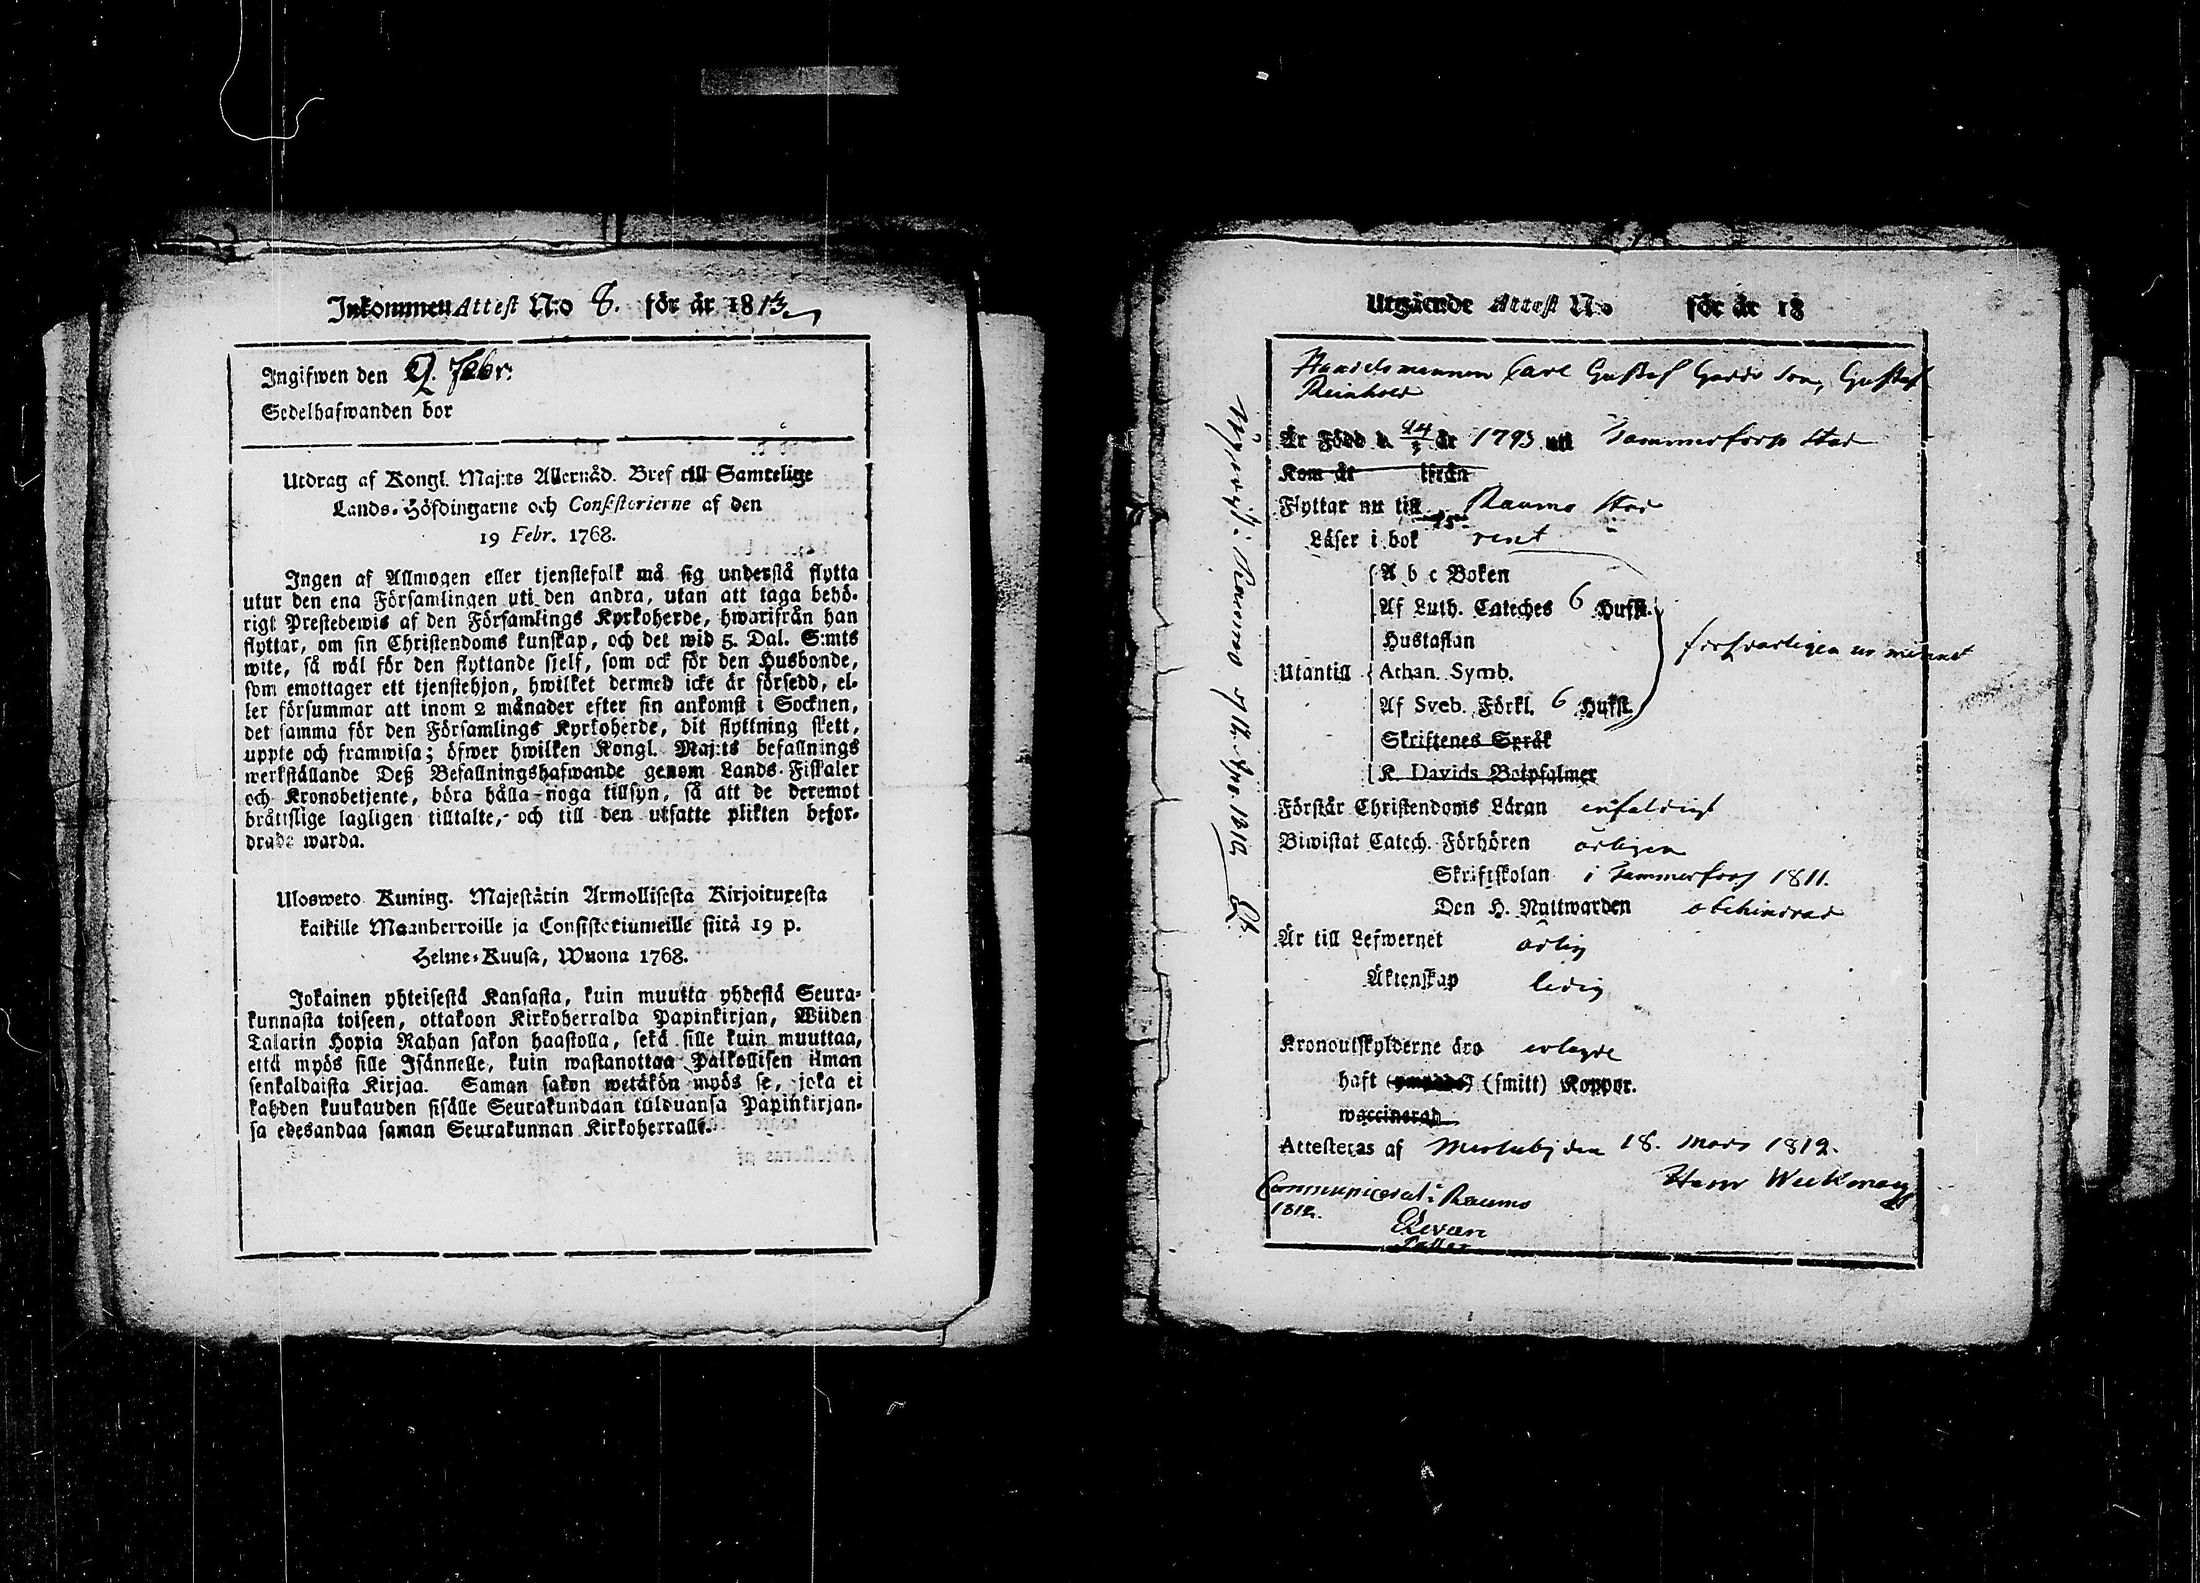 Inkommen Attest N:o 8. för år 1813
Ingifwen den 2. Febr:
Sedelhafwanden bor
Utdrag af Kongl. Maj:ts Allernåd. Bref till Samtelige
Lands-Höfdingarne och Consistorierne af den
19 Febr. 1768.
Ingen af Allmogen eller tjenstefolk må sig understå flytta
utur den ena Församlingen uti den andra, utan att taga behö-
rigt Prestebewis af den Församlings Kyrkoherde, hwarifrån han
flyttar, om sin Christendoms kunskap, och det wid 5. Dal. S:mts
wite, så wäl för den flyttande sielf, som ock för den Husbonde,
som emottager ett tjenstehjon, hwilket dermed icke är försedd, el-
ler försummar att inom 2 månader efter sin ankomst i Socknen,
det samma för den Församlings Kyrkoherde, dit flyttning skett,
uppte och framwisa; öfwer hwilken Kongl. Maj:ts befallnings
werkställande Deß Befallningshafwande genom Lands-Fiskaler
och Kronobetjente, böra hålla noga tillsyn, så att de deremot
bråttslige lagligen tilltalte, och till den utsatte plikten befor-
drade warda.
Ulosweto Kuning. Majestätin Armollisesta Kirjoituxesta
kaikille Maanherroille ja Consistoriumeille siitä 19 p.
Helme-Kuusa, Wuona 1768.
Jokainen yhteisestä Kansasta, kuin muutta yhdestä Seura-
kunnasta toiseen, ottakoon Kirkoherralda Papinkirjan, Wiiden
Talarin Hopia Rahan sakon haastolla, sekä sille kuin muuttaa,
että myös sille Isännelle, kuin wastanottaa Palkollisen ilman
senkaldaista Kirjaa. Saman sakon wetäkön myös se, joka ei
kahden kuukauden sisälle Seurakundaan tulduansa Papinkirjan-
sa edesandaa saman Seurakunnan Kirkoherralle.
Utgående Attest N:o för år 18
Handelsmannen Carl Gustaf son, Gustaf
Reinhold
Är Född d. 24/3 år 1793 uti Tammerfors Stad
Kom år ifrån
Flyttar nu till Raumo Stad
Läser i bok rent
A b c Boken
Af Luth. Cateches 6 Hufst.
Hustaflan
Utantill Athan. Symb.
Af Sveb. Förkl. 6 Hufst.
Skriftenes Språk
K. Davids Botpsalmer
försvarligen ur minnet
Förstår Christendoms Läran enfaldigt
Biwistat Catech. Förhören årligen
Skriftskolan i Tammerfors 1811.
Den H. Nattwarden obehindrad
Är till Lefwernet ärlig
Äktenskap ledig
Kronoutskylderne äro erlagde
haft (smitt) Koppor.
waccinerad
Attesteras af Messuby den 18. Mars 1812.
Communicerat i Raumo
1812.